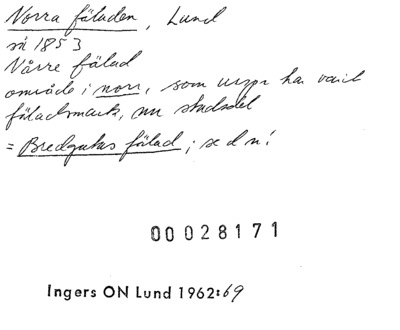 Norra fäladen, Lund
så 1853
Nårre fälad
område i norr, som urspr har varit
fäladsmark, nu stadsdel
= Bredgatas fälad; se d n!
00028171
Ingers ON Lund 1962:69